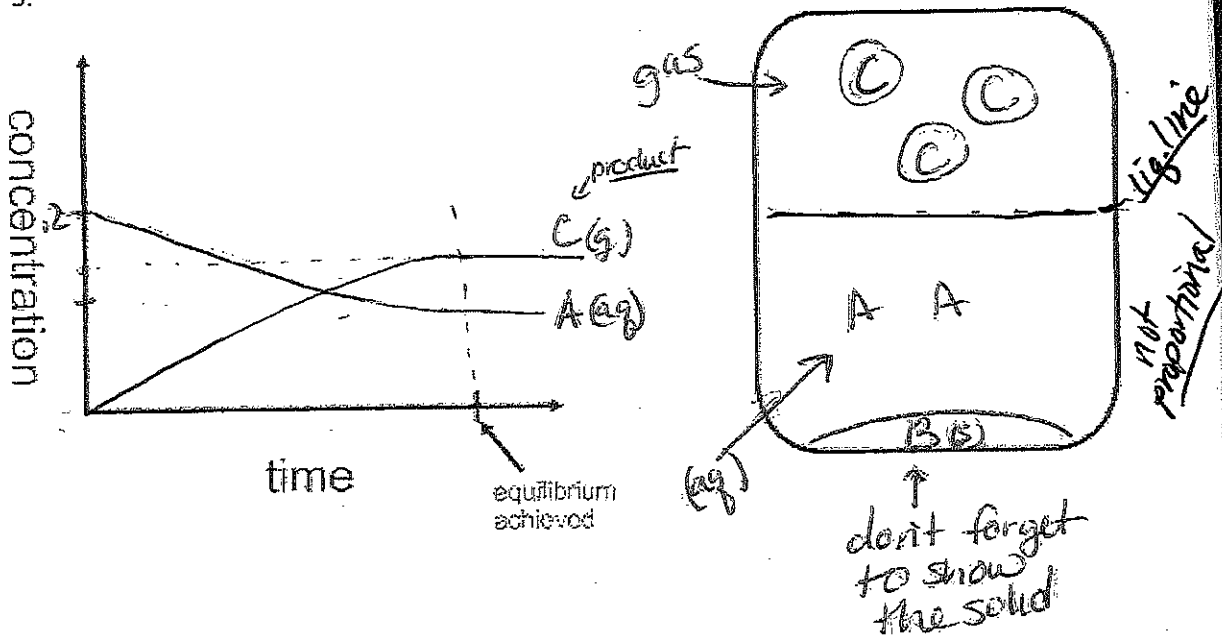 concentration
.2
product
C (g)
A (aq)
time
equilibrium
achieved
gas
C
C
C
liq. line
not
proportional
A A
(aq)
B (s)
don't forget
to show
the solid